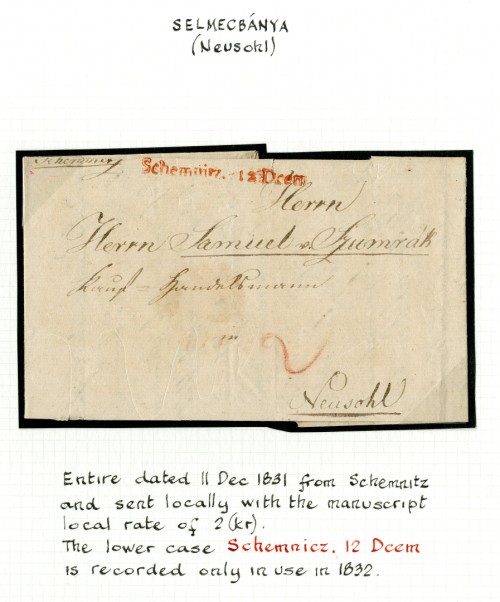 SELMECBÁNYA
(Neusohl)
Schemnitz
Schemnicz. 12 Dcem
Herrn
Herrn Samuel v. Szumrák
Kauf = Handelsmann
in
2
Neusohl
Entire dated 11 Dec 1831 from Schemnitz
and sent locally with the manuscript
local rate of 2(kr).
The lower case Schemnicz. 12 Dcem
is recorded only in use in 1832.